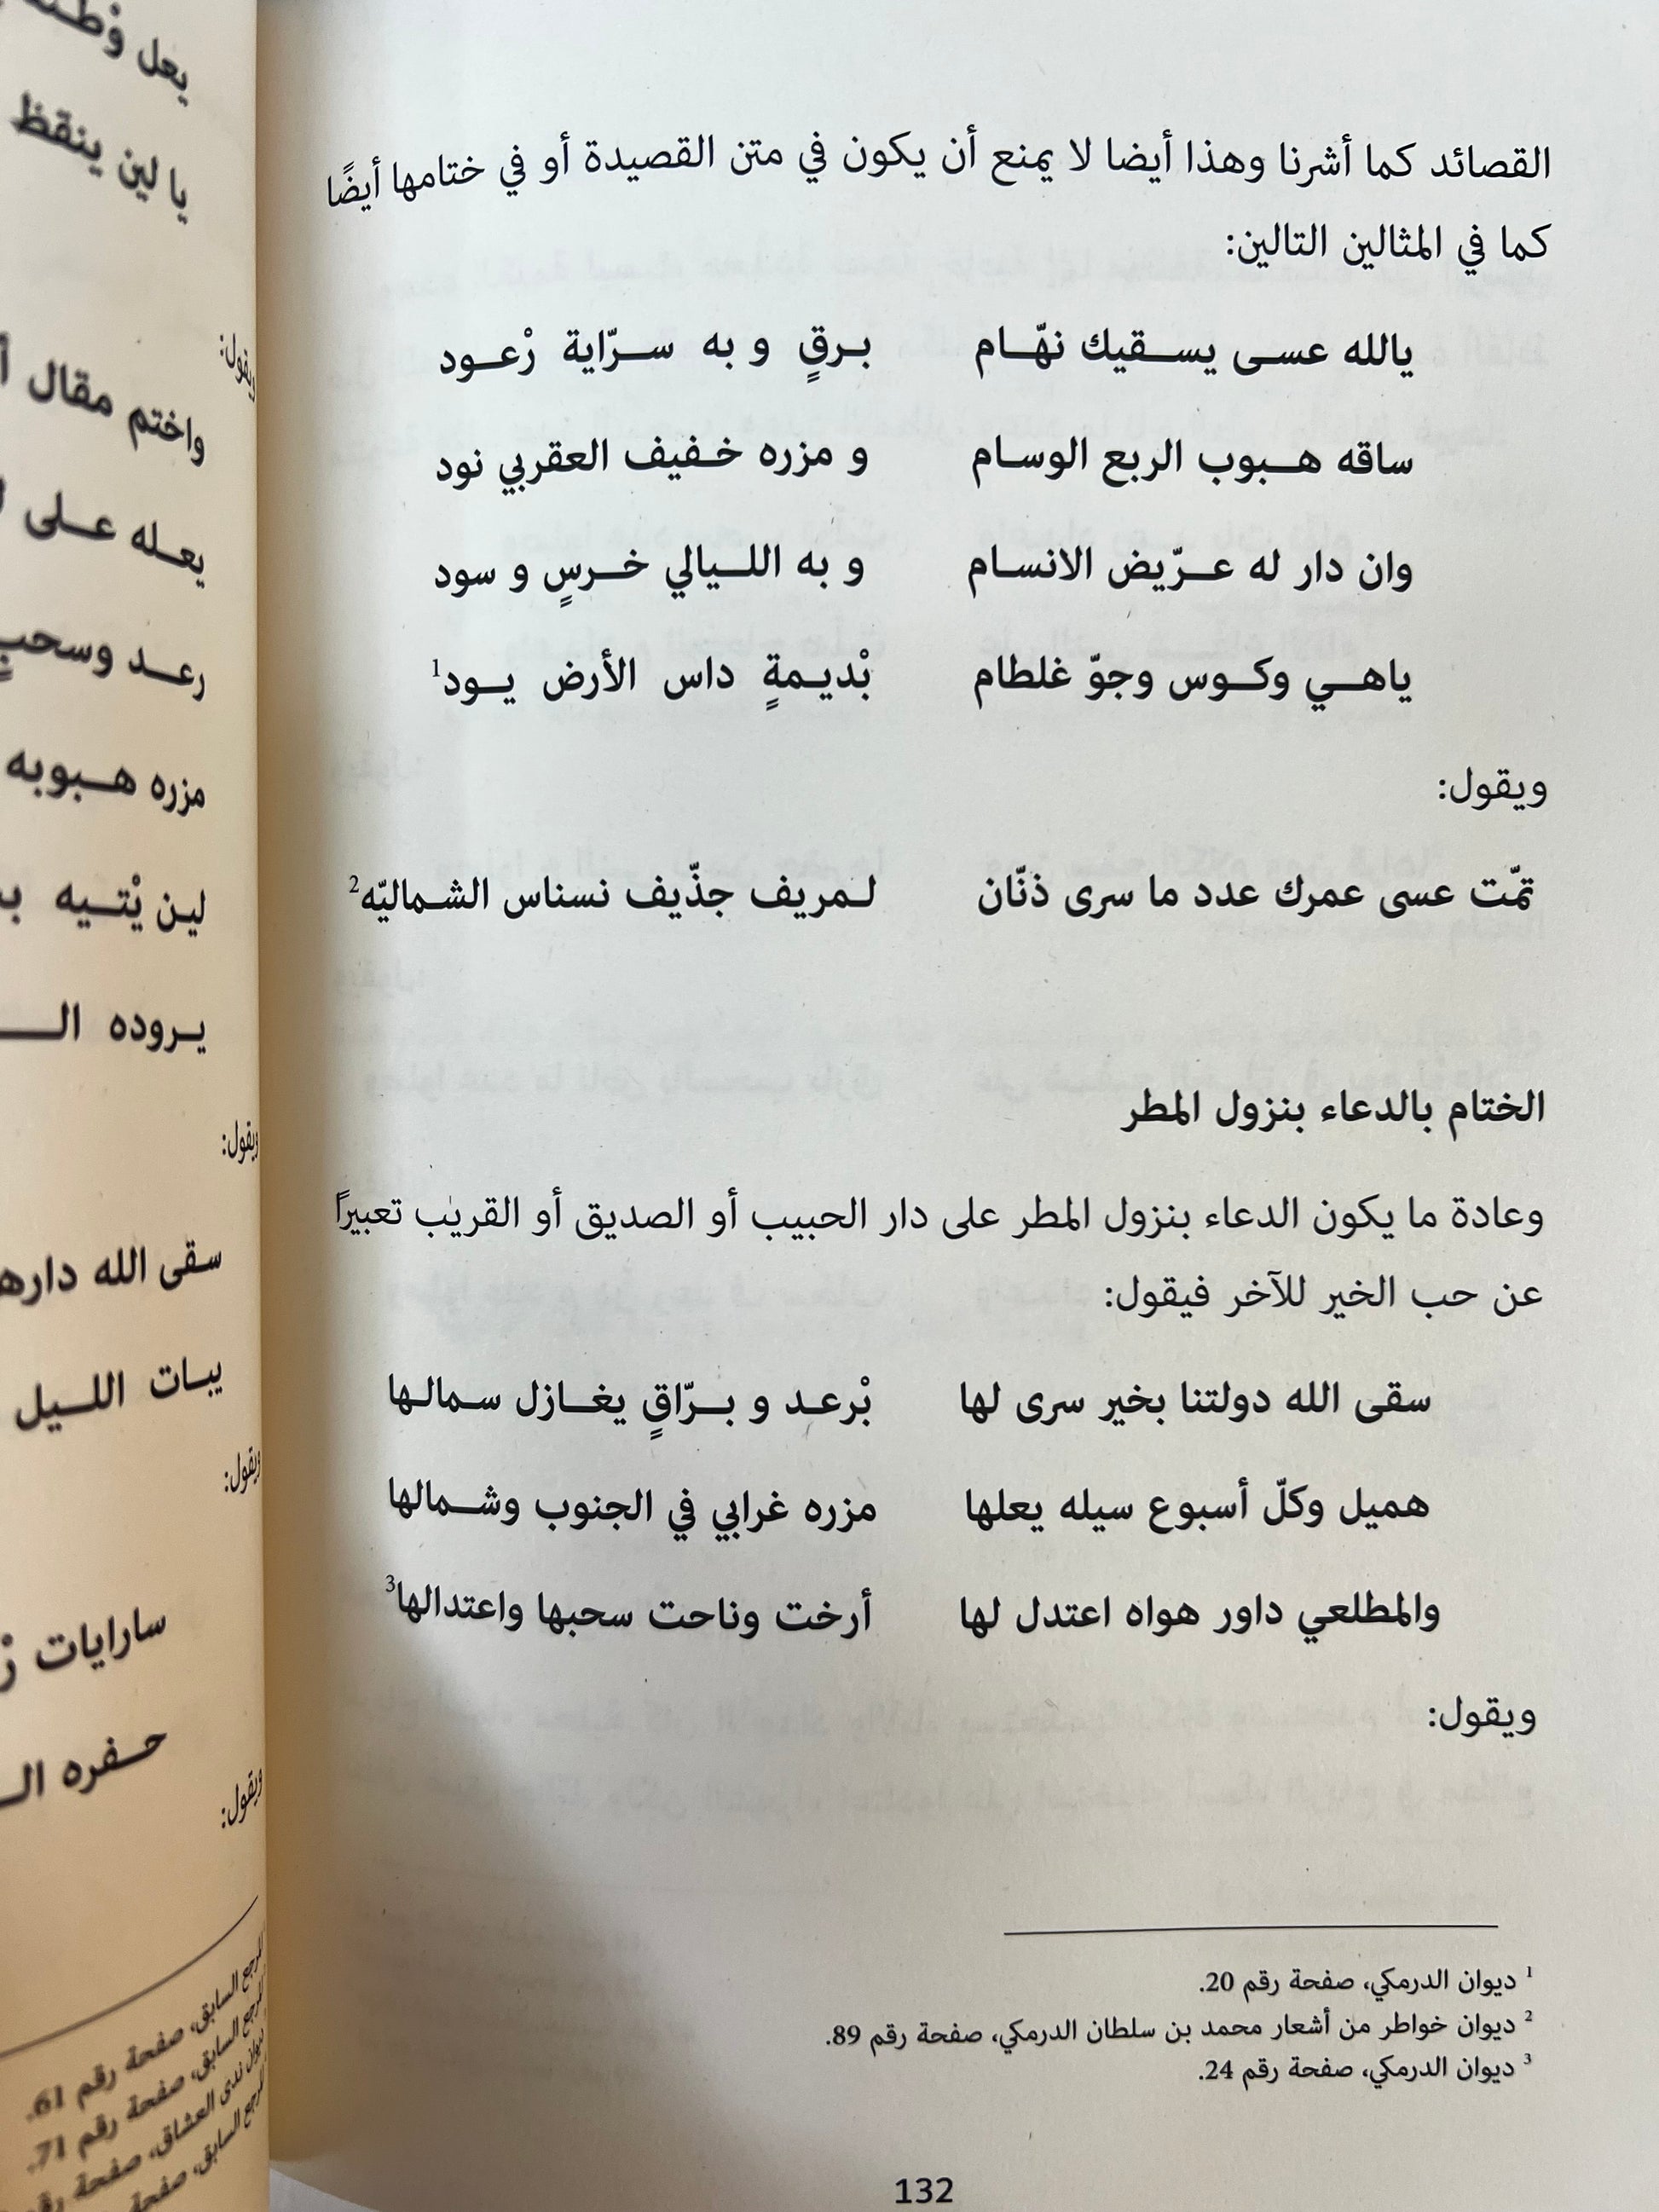 القصائد كما أشرنا وهذا أيضا لا يمنع أن يكون في متن القصيدة أو في ختامها أيضًا
كما في المثالين التالين:
يالله عسـى يسـقيك نهّـام برقٍ و به سـرّاية رْعـود
ساقه هـبوب الربع الوسـام و مزره خـفيف العقربي نود
وان دار له عـرّيض الانسـام و به اللـيالي خـرسٍ و سود
ياهـي وكـوس وجوّ غلطام بْديـمةٍ داس الأرض يـود1
ويقول:
تمّت عسى عمرك عدد ما سرى ذنّان لـمريف جذّيف نسناس الشـماليّه2
الختام بالدعاء بنزول المطر
وعادة ما يكون الدعاء بنزول المطر على دار الحبيب أو الصديق أو القريب تعبيرًا
عن حب الخير للآخر فيقول:
سقى الله دولتنا بخير سرى لها بْرعـد و بـرّاقٍ يغـازل سـمالـها
هميل وكلّ أسبوع سيله يعلها مزره غرابي في الجنوب وشـمالها
والمطلعي داور هواه اعتدل لها أرخت وناحت سحبها واعتدالها3
ويقول:
1 ديوان الدرمكي، صفحة رقم 20.
2 ديوان خواطر من أشعار محمد بن سلطان الدرمكي، صفحة رقم 89.
3 ديوان الدرمكي، صفحة رقم 24.
132
يعل
يا لين ينقظ
ويقول:
واختم مقال
يعـله عـلى
رعـد وسحب
مزره هـبوبه
لين يْتـيه
يـروده
ويقول:
سقى الله دارها
يبـات اللـيل
ويقول:
سارايات
حـفره
ويقول:
المرجع السابق، صفحة رقم 61.
المرجع السابق، صفحة رقم 71.
ديوان ندى العشاق، صفحة رقم
المرجع السابق، صفحة